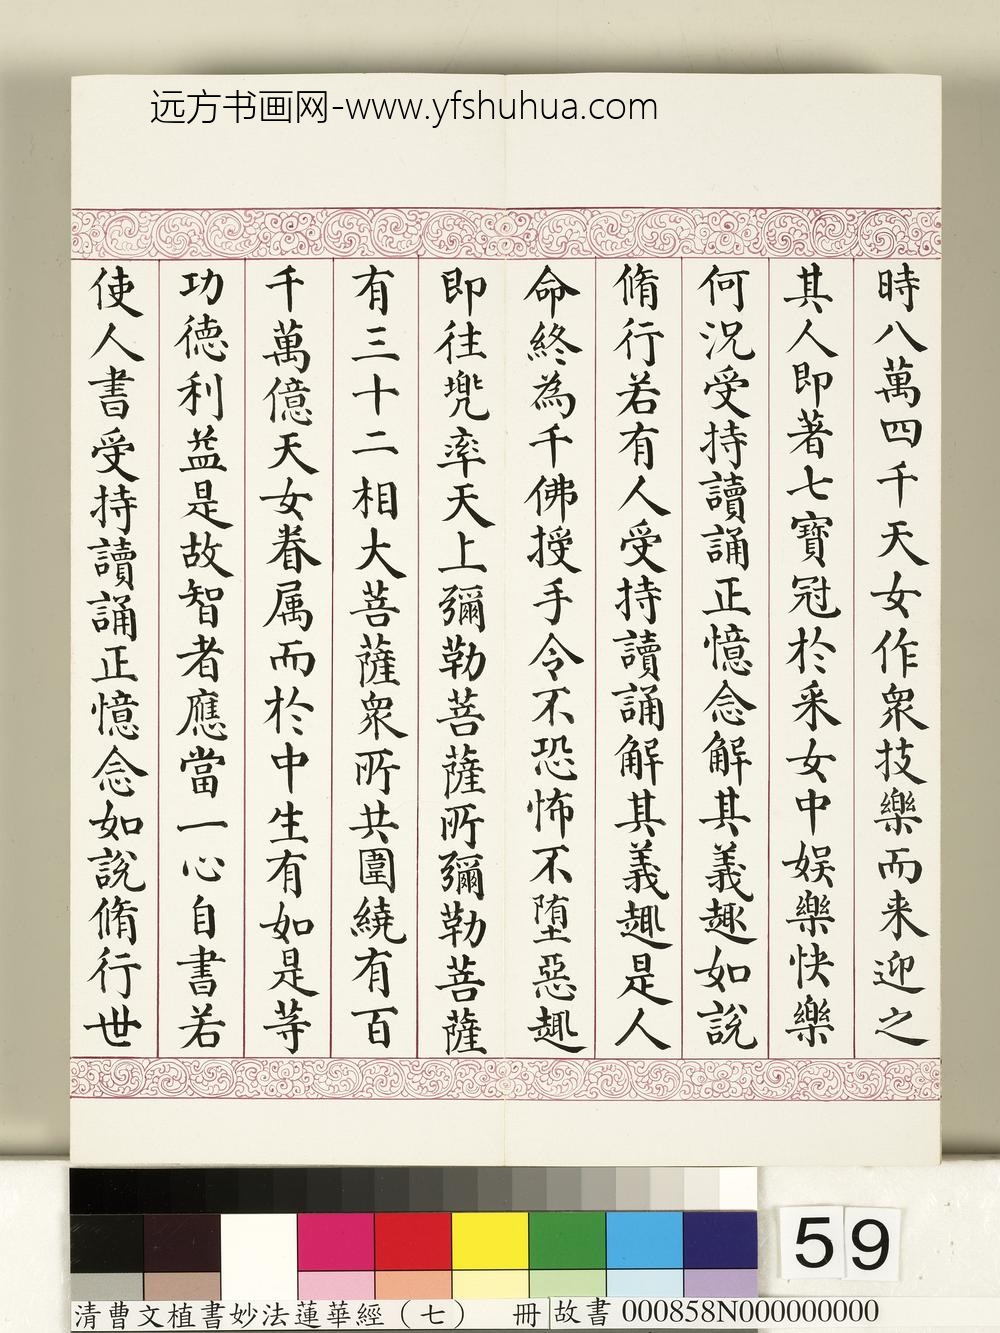 远方书画网-www.yfshuhua.com
時八萬四千天女作衆技樂而来迎之
其人即著七寶冠於采女中娱樂快樂
何況受持讀誦正憶念解其義趣如說
脩行若有人受持讀誦解其義趣是人
命終為千佛授手令不恐怖不堕惡趣
即往兜率天上彌勒菩薩所彌勒菩薩
有三十二相大菩薩衆所共圍繞有百
千萬億天女眷属而於中生有如是等
功德利益是故智者應當一心自書若
使人書受持讀誦正憶念如說脩行世
59
清曹文植書妙法蓮華經（七） 冊 故書 000858N000000000